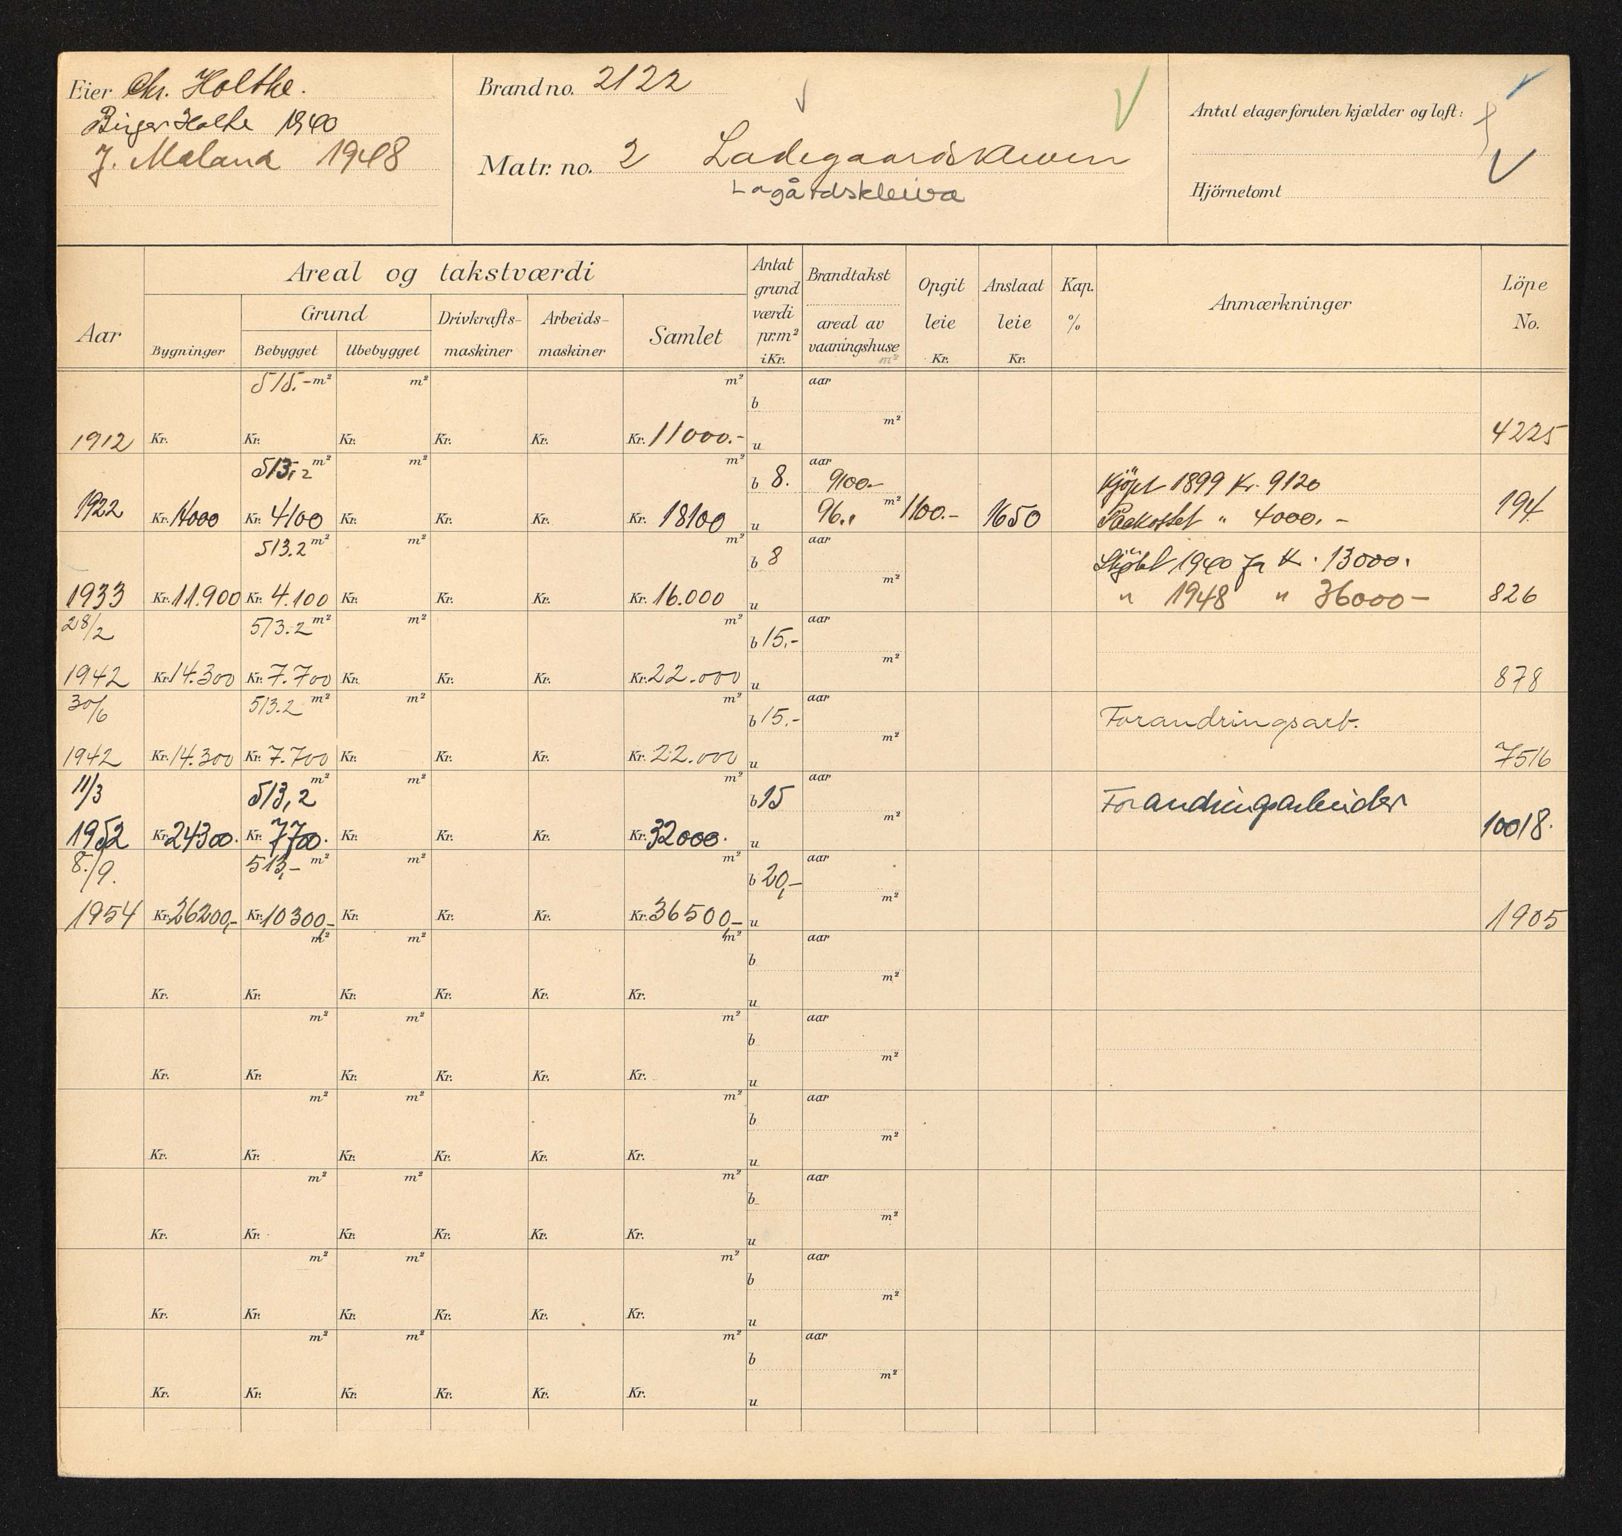 Eier Chr. Holthe.
Birger Holte 1940
J. Maland 1948
Brand no. 2122
Matr. no. 2 Ladegaardskleven
Lagårdskleiva
Antal etager foruten kjælder og loft:
Hjörnetomt
Aar
Areal og takstværdi
Bygninger
Grund
Bebygget Ubebygget
Drivkrafts-
maskiner
Arbeids-
maskiner
Samlet
Antat
grund
værdi
pr.m²
i Kr.
Brandtakst
areal av
vaaningshuse
m²
Opgit
leie
Kr.
Anslaat
leie
Kr.
Kap.
%
Anmærkninger
Löpe
No.
515.- m² m² m² aar
b
m²
1912 Kr. Kr. Kr. Kr. Kr. Kr. 11000.- u 4225
513,2 m² m² m² b 8. aar 9100.- Kjöpt 1899 Kr. 9120
1922 Kr. 14000 Kr. 4100 Kr. Kr. Kr. Kr. 18100 u 96.,, m² 1100.- 1650 Paakostet " 4000.- 194
513.2 m² m² m² b 8 aar Skjöte 1940 fr Kr. 13000.
m²
1933 Kr. 11.900 Kr. 4.100 Kr. Kr. Kr. Kr. 16.000 u " 1948 " 36000- 826
28/2 513.2 m² m² m² b 15,- aar
m²
1942 Kr. 14.300 Kr. 7.700 Kr. Kr. Kr. Kr. 22.000 u 878
30/6 513.2 m² m² m² b 15.- aar Forandringsarb.
m²
1942 Kr. 14.300 Kr. 7.700 Kr. Kr. Kr. Kr. 22.000 u 7516
11/3 513,2 m² m² m² b 15 aar Forandringsarbeider
m²
1952 Kr. 24300. Kr. 7700. Kr. Kr. Kr. Kr. 32000. u 10018.
8./9. 513,- m² m² m² b 20,- aar
m²
1954 Kr. 26200,- Kr. 10300,- Kr. Kr. Kr. Kr. 36500,- u 1905
m² m² m² aar
b
m²
Kr. Kr. Kr. Kr. Kr. Kr. u
m² m² m² aar
b
m²
Kr. Kr. Kr. Kr. Kr. Kr. u
m² m² m² aar
b
m²
Kr. Kr. Kr. Kr. Kr. Kr. u
m² m² m² aar
b
m²
Kr. Kr. Kr. Kr. Kr. Kr. u
m² m² m² aar
b
m²
Kr. Kr. Kr. Kr. Kr. Kr. u
m² m² m² aar
b
m²
Kr. Kr. Kr. Kr. Kr. Kr. u